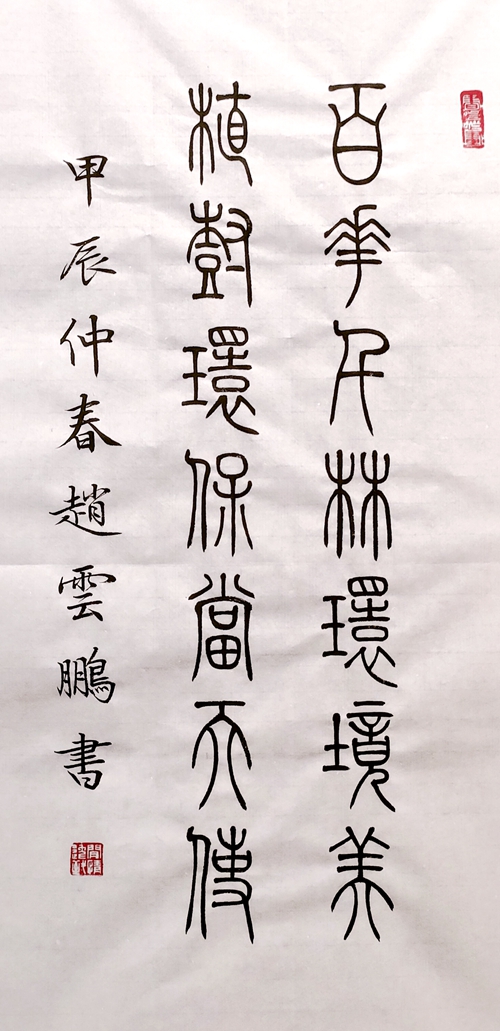 百花千林環境美
植樹環保當天使
甲辰仲春趙雲鵬書